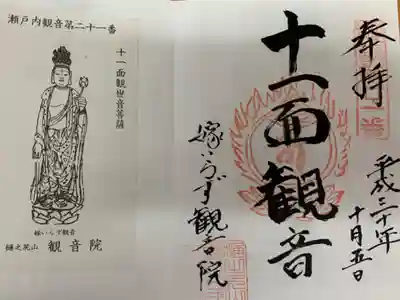 奉拝
平成三十年
十月五日
十一面観音
嫁いらず観音院
瀬戸内観音第二十一番
十一面観世音菩薩
嫁いらず観音
樋之尻山 観音院